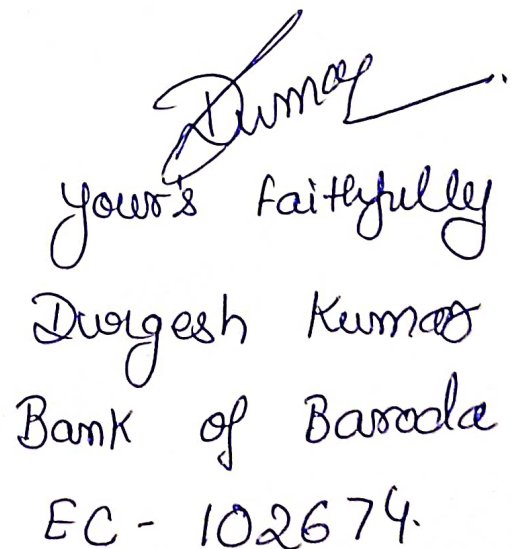 DKumar
your's faithfully
Durgesh Kumar
Bank of Baroda
EC - 102674.